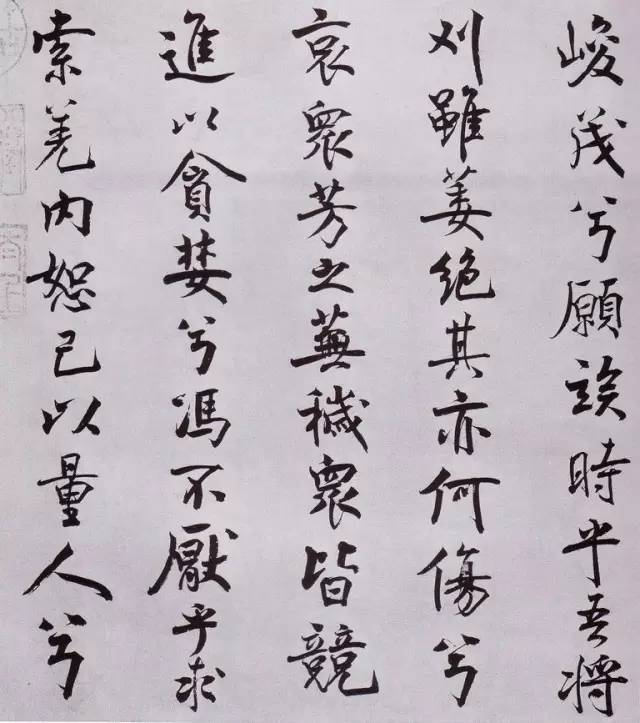 峻茂兮願竢時乎吾將
刈雖萎絶其亦何傷兮
哀衆芳之蕪穢衆皆競
進以貪婪兮馮不厭乎求
索羌内恕己以量人兮